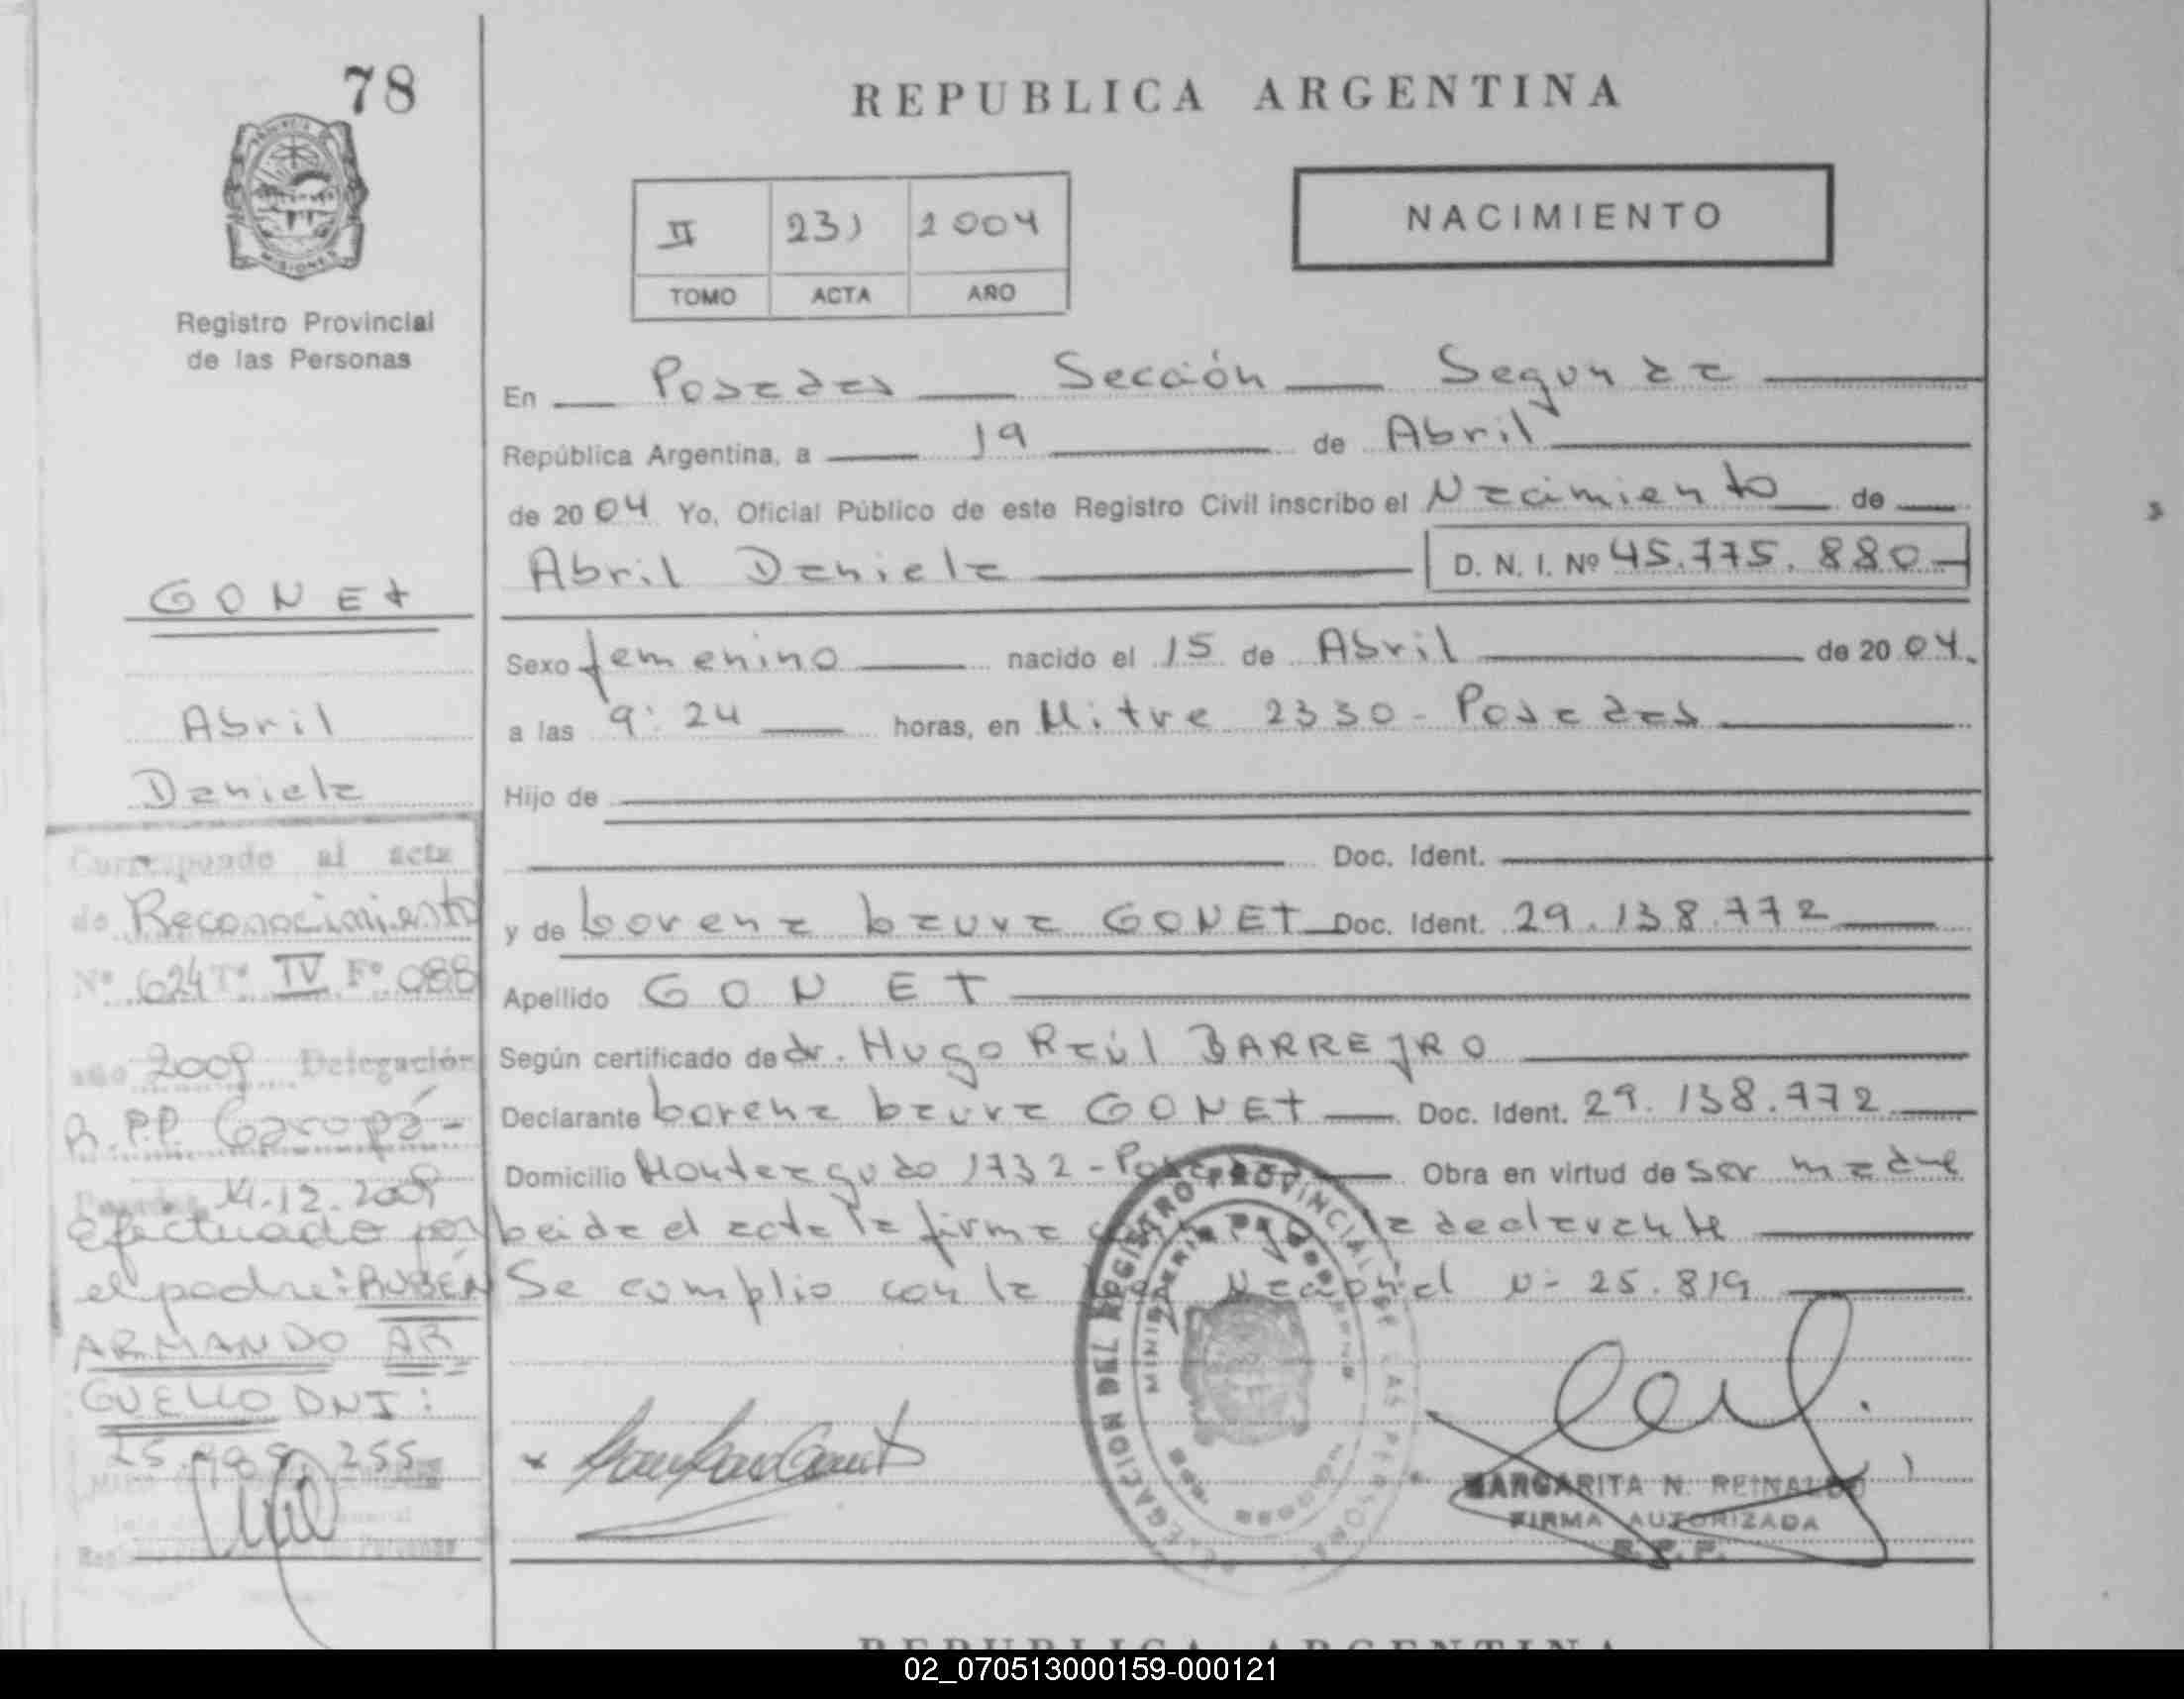 78
Registro Provincial
de las Personas
GONET
Abril
Daniela
Corresponde al acta
de Reconocimiento
Nº 624 Tº IV Fº 088
año 2009 Delegación
R.P.P. Garupá -
Posadas, 14.12.2009
efectuado por
el padre: RUBÉN
ARMANDO AR
GUELLO DNI:
255
REPUBLICA ARGENTINA
II 231 2004
TOMO ACTA AÑO
NACIMIENTO
En Posadas Sección Segunda
República Argentina, a 19 de Abril
de 2004 Yo, Oficial Público de este Registro Civil inscribo el Nacimiento de
Abril Daniela D. N. I. Nº 45.775.880
Sexo femenino nacido el 15 de Abril de 2004.
a las 9:24 horas, en Mitre 2330 - Posadas
Hijo de
Doc. Ident.
y de Lorena Laura GONET Doc. Ident. 29.138.772
Apellido GONET
Según certificado de dr. Hugo Raúl BARREJRO
Declarante Lorena Laura GONET Doc. Ident. 29.138.772
Domicilio Monteagudo 1732 - Posadas Obra en virtud de ser madre
Leida el acta la firma conmigo la declarante
Se cumplio con la Ley Nacional Nº 25.819
DELEGACION DEL REGISTRO PROVINCIAL DE LAS PERSONAS
MARGARITA N. REINALDO
FIRMA AUTORIZADA
REPUBLICA ARGENTINA
02_070513000159-000121